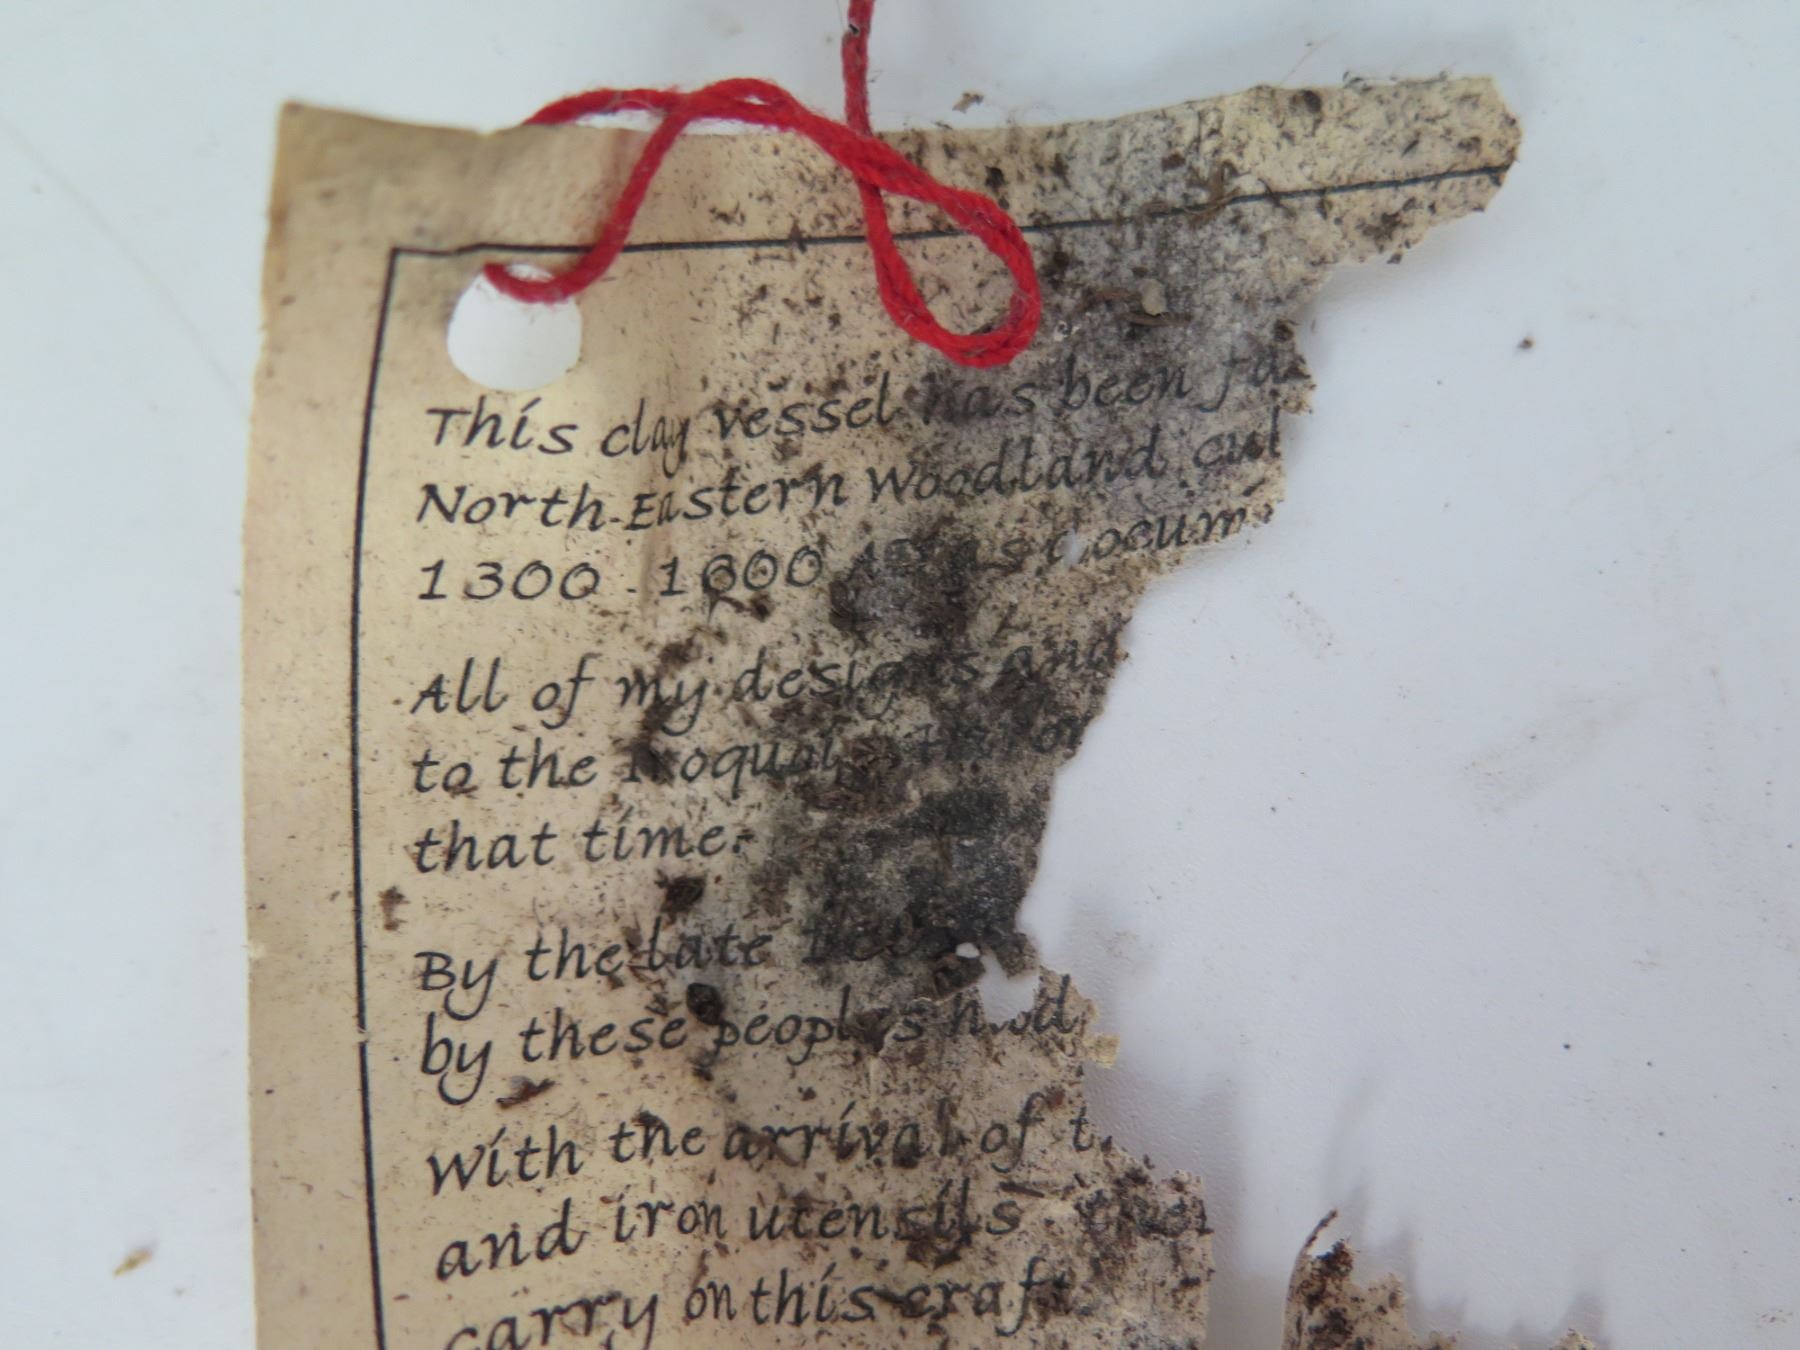 This clay vessel has been
North-Eastern Woodland
1300 - 1600
All of my designs and
to the Iroquois
that time.
By the late
by these peoples had
With the arrival of
and iron utensils
carry on this craft